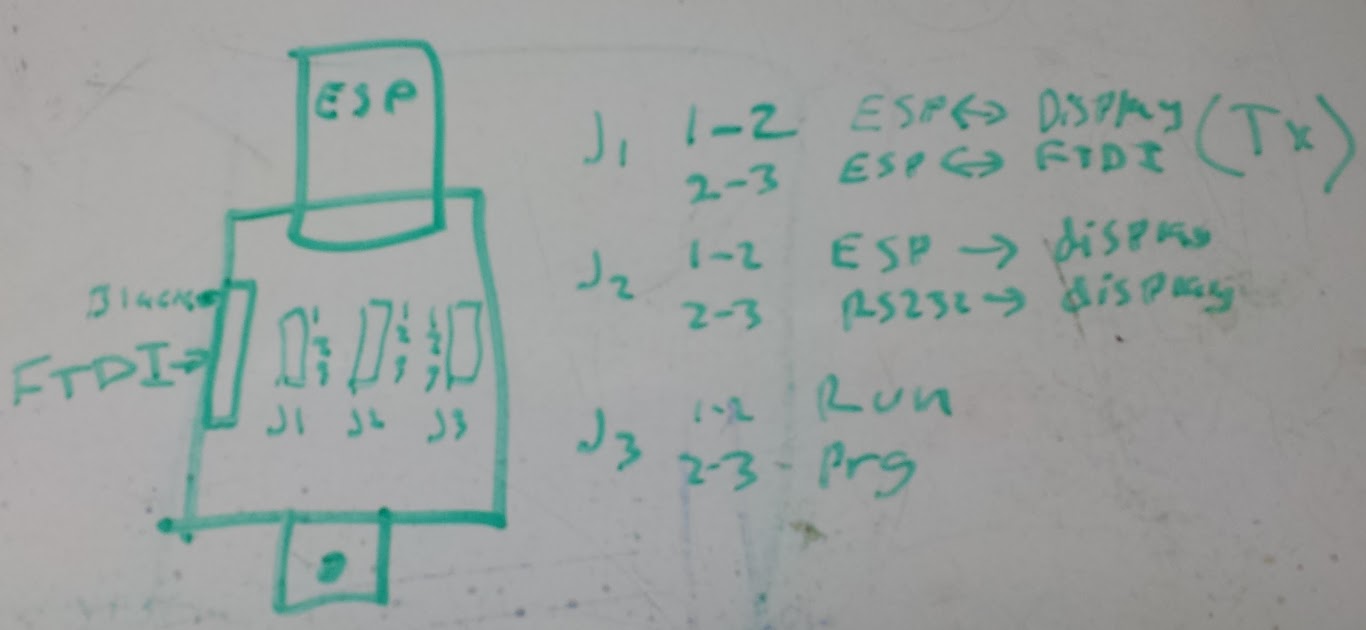 ESP
Black
FTDI→
1
2
3
1
2
3
1
2
3
J1 J2 J3
J1 1-2 ESP↔Display (Tx)
2-3 ESP↔FTDI
J2 1-2 ESP → display
2-3 RS232→ display
J3 1-2 Run
2-3 - Prg